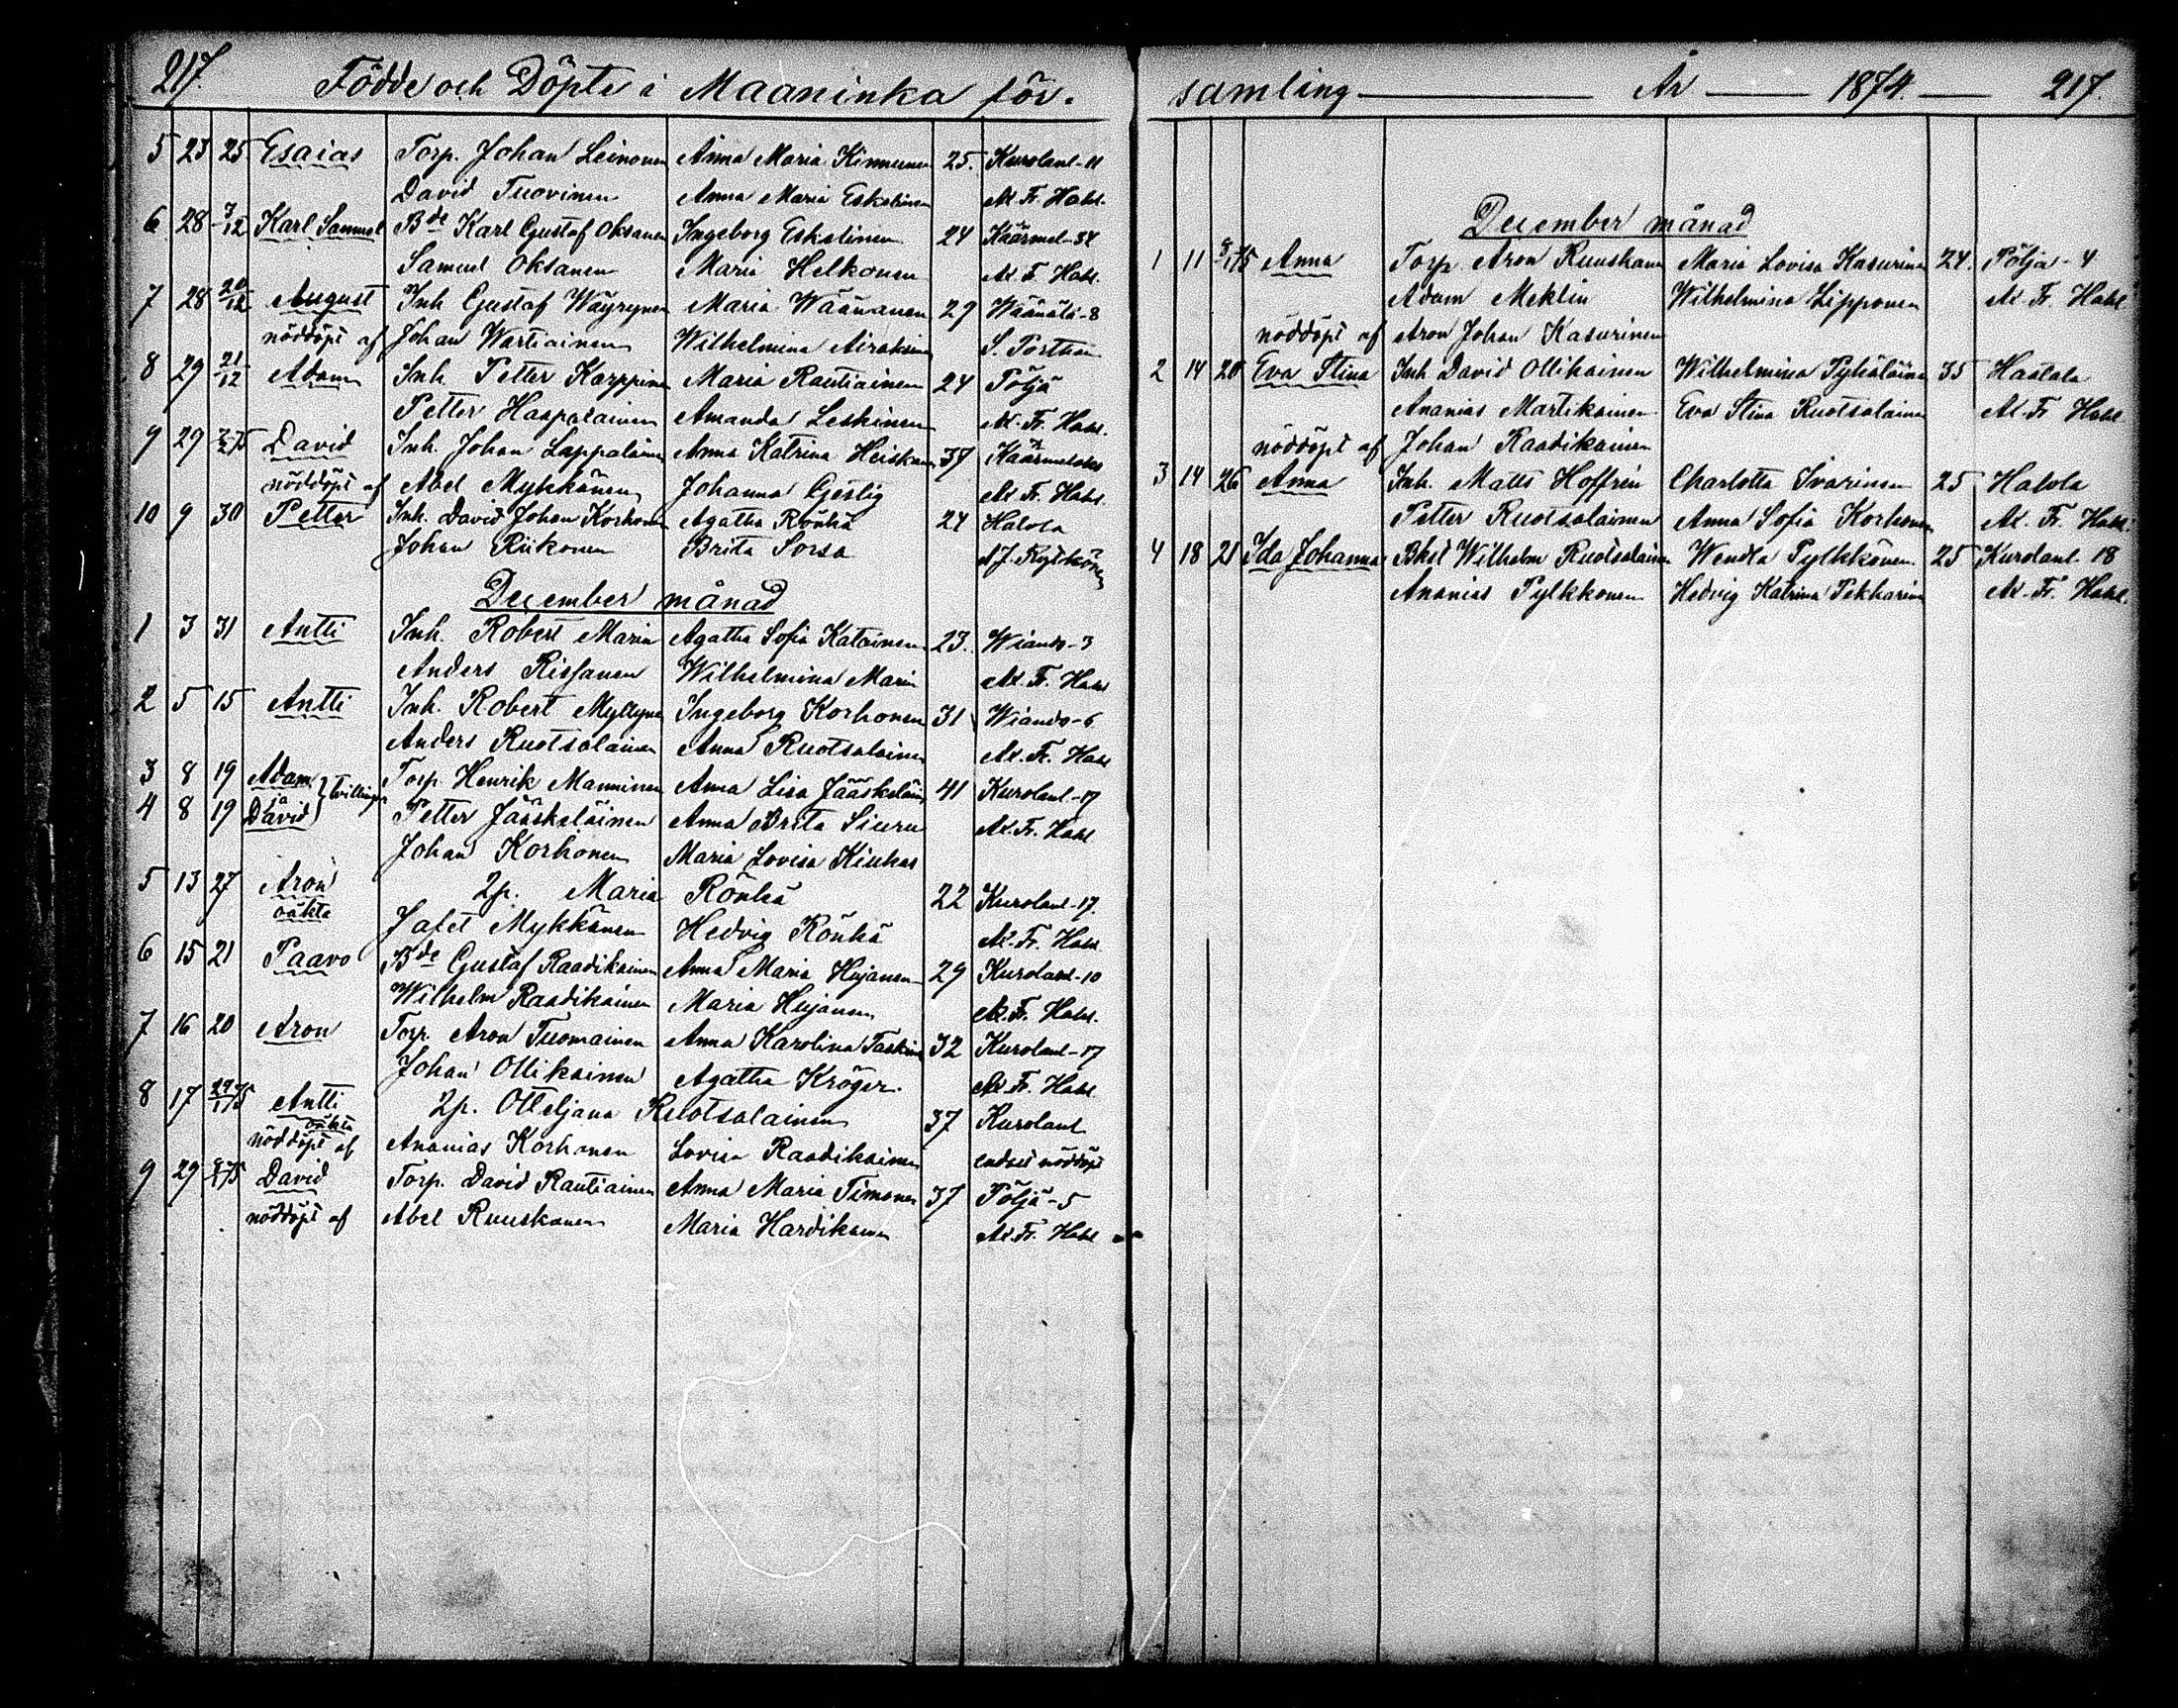 217. Födde och Döpte i Maaninka för.
5 23 25 Esaias Torp. Johan Leinonen Anna Maria Kinnunen 25. Kurolanl-11
David Tuovinen Anna Maria Eskelinen Al. Fr. Hahl.
6 28 3/12 Karl Samuel Bde Karl Gustaf Oksanen Ingeborg Eskelinen 24 Käärmel-34
Samuel Oksanen Maria Helkonen Al. F. Hahl.
7 28 20/12 August Inh Gustaf Wäyrynen Maria Wäänänen 29 Wäänälä-8
nöddöpt af Johan Wartiainen Wilhelmina Airaksinen S. Porthan
8 29 21/12 Adam Inh. Petter Karppinen Maria Rautiainen 24 Pöljä
Petter Haapalainen Amanda Leskinen Al. Fr. Hahl.
9 29 David Inh. Johan Lappalainen Anna Katrina Heiskanen 37
nöddöpt af Abel Mykkänen Johanna Al Fr. Hahl.
10 9 30 Petter Inh. David Johan Korhonen Agatha Rönkä 24 Halola
Johan Riikonen Brita Sorsa
December månad
1 3 31 Antti Inh. Robert Marin Agatha Sofia Katainen 23. Wianto-3
Anders Rissanen Wilhelmina Marin Al. Fr. Hahl
2 5 15 Antti Inh. Robert Myllynen Ingeborg Korhonen 31 Wianto-6
Anders Ruotsalainen Anna Ruotsalainen Al. Fr. Hahl
3 8 19 Adam Torp. Henrik Manninen Anna Lisa Jääskeläinen 41 Kurolanl-17
ja } tvillingar
4 8 19 David Petter Jääskeläinen Anna Brita Siuru Al. Fr. Hahl
Johan Korhonen Maria Lovisa Kiukas
5 13 27 Aron 2p. Maria Rönkä 22 Kurolanl-17.
oäkta Jafet Mykkänen Hedvig Rönkä Al. Fr. Hahl.
6 15 21 Paavo Bde Gustaf Raadikainen Anna Maria Hujanen 29 Kurolanl-10
Wilhelm Raadikainen Maria Hujanen Al. Fr. Hahl.
7 16 20 Aron Torp. Aron Tuomainen Anna Karolina Taskinen 32 Kurolanl-17
Johan Ollikainen Agatha Kröger. Al. Fr. Hahl.
8 17 Antti 2p. Otteljana Ruotsalainen 37 Kurolanl
oäkta
nöddöpt af Ananias Korhonen Lovisa Raadikainen endast nöddöpt
9 29 David Torp. David Rautiainen Anna Maria Timonen 37 Pöljä-5
nöddöpt af Abel Ruuskanen Maria Hardikainen Al. Fr. Hahl
samling År 1874. 217.
December månad
1 11 Anna Torp. Aron Ruuskanen Maria Lovisa Kasurinen 24. Pöljä-4
Adam Meklin Wilhelmina Lipponen Al. Fr. Hahl
nöddöpt af Aron Johan Kasurinen
2 14 20 Eva Stina Inh David Ollikainen Wilhelmina Pyhäläinen 35 Haatala
Ananias Martikainen Eva Stina Ruotsalainen Al. Fr Hahl
nöddöpt af Johan Raadikainen
3 14 26 Anna Inh. Matts Hoffrén Charlotta Svarinen 25 Halola
Petter Ruotsalainen Anna Sofia Korhonen Al. Fr. Hahl.
4 18 21 Ida Johanna Bkst Wilhelm Ruotsalainen Wendla Pylkkönen 25 Kurolanl- 18
Ananias Pylkkönen Hedvig Katrina Pekkarinen Al. Fr. Hahl.